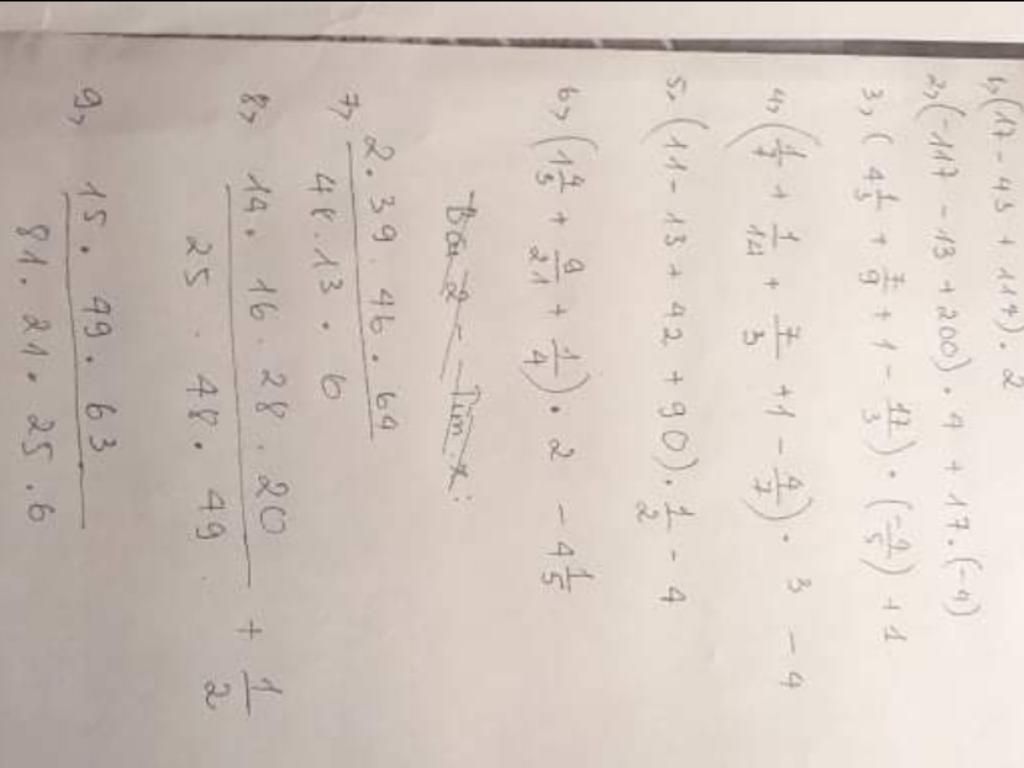 1, (17 - 43 + 117). 2
2, (-117 - 13 + 200). 4 + 17.(-4)
3, (4 1/3 + 7/9 + 1 - 17/3).(-4/5) + 1
4, (1/7 + 1/14 + 7/3 + 1 - 4/7). 3 - 4
5, (11 - 13 + 42 + 90). 1/2 - 4
6, (1 4/5 + 9/21 + 1/4). 2 - 4 1/5
Bài 2 - Tìm x:
7, 2. 39. 46. 69
48. 13. 6
8, 14. 16. 28. 20 + 1/2
25. 48. 49
9, 15. 49. 63
81. 21. 25. 6